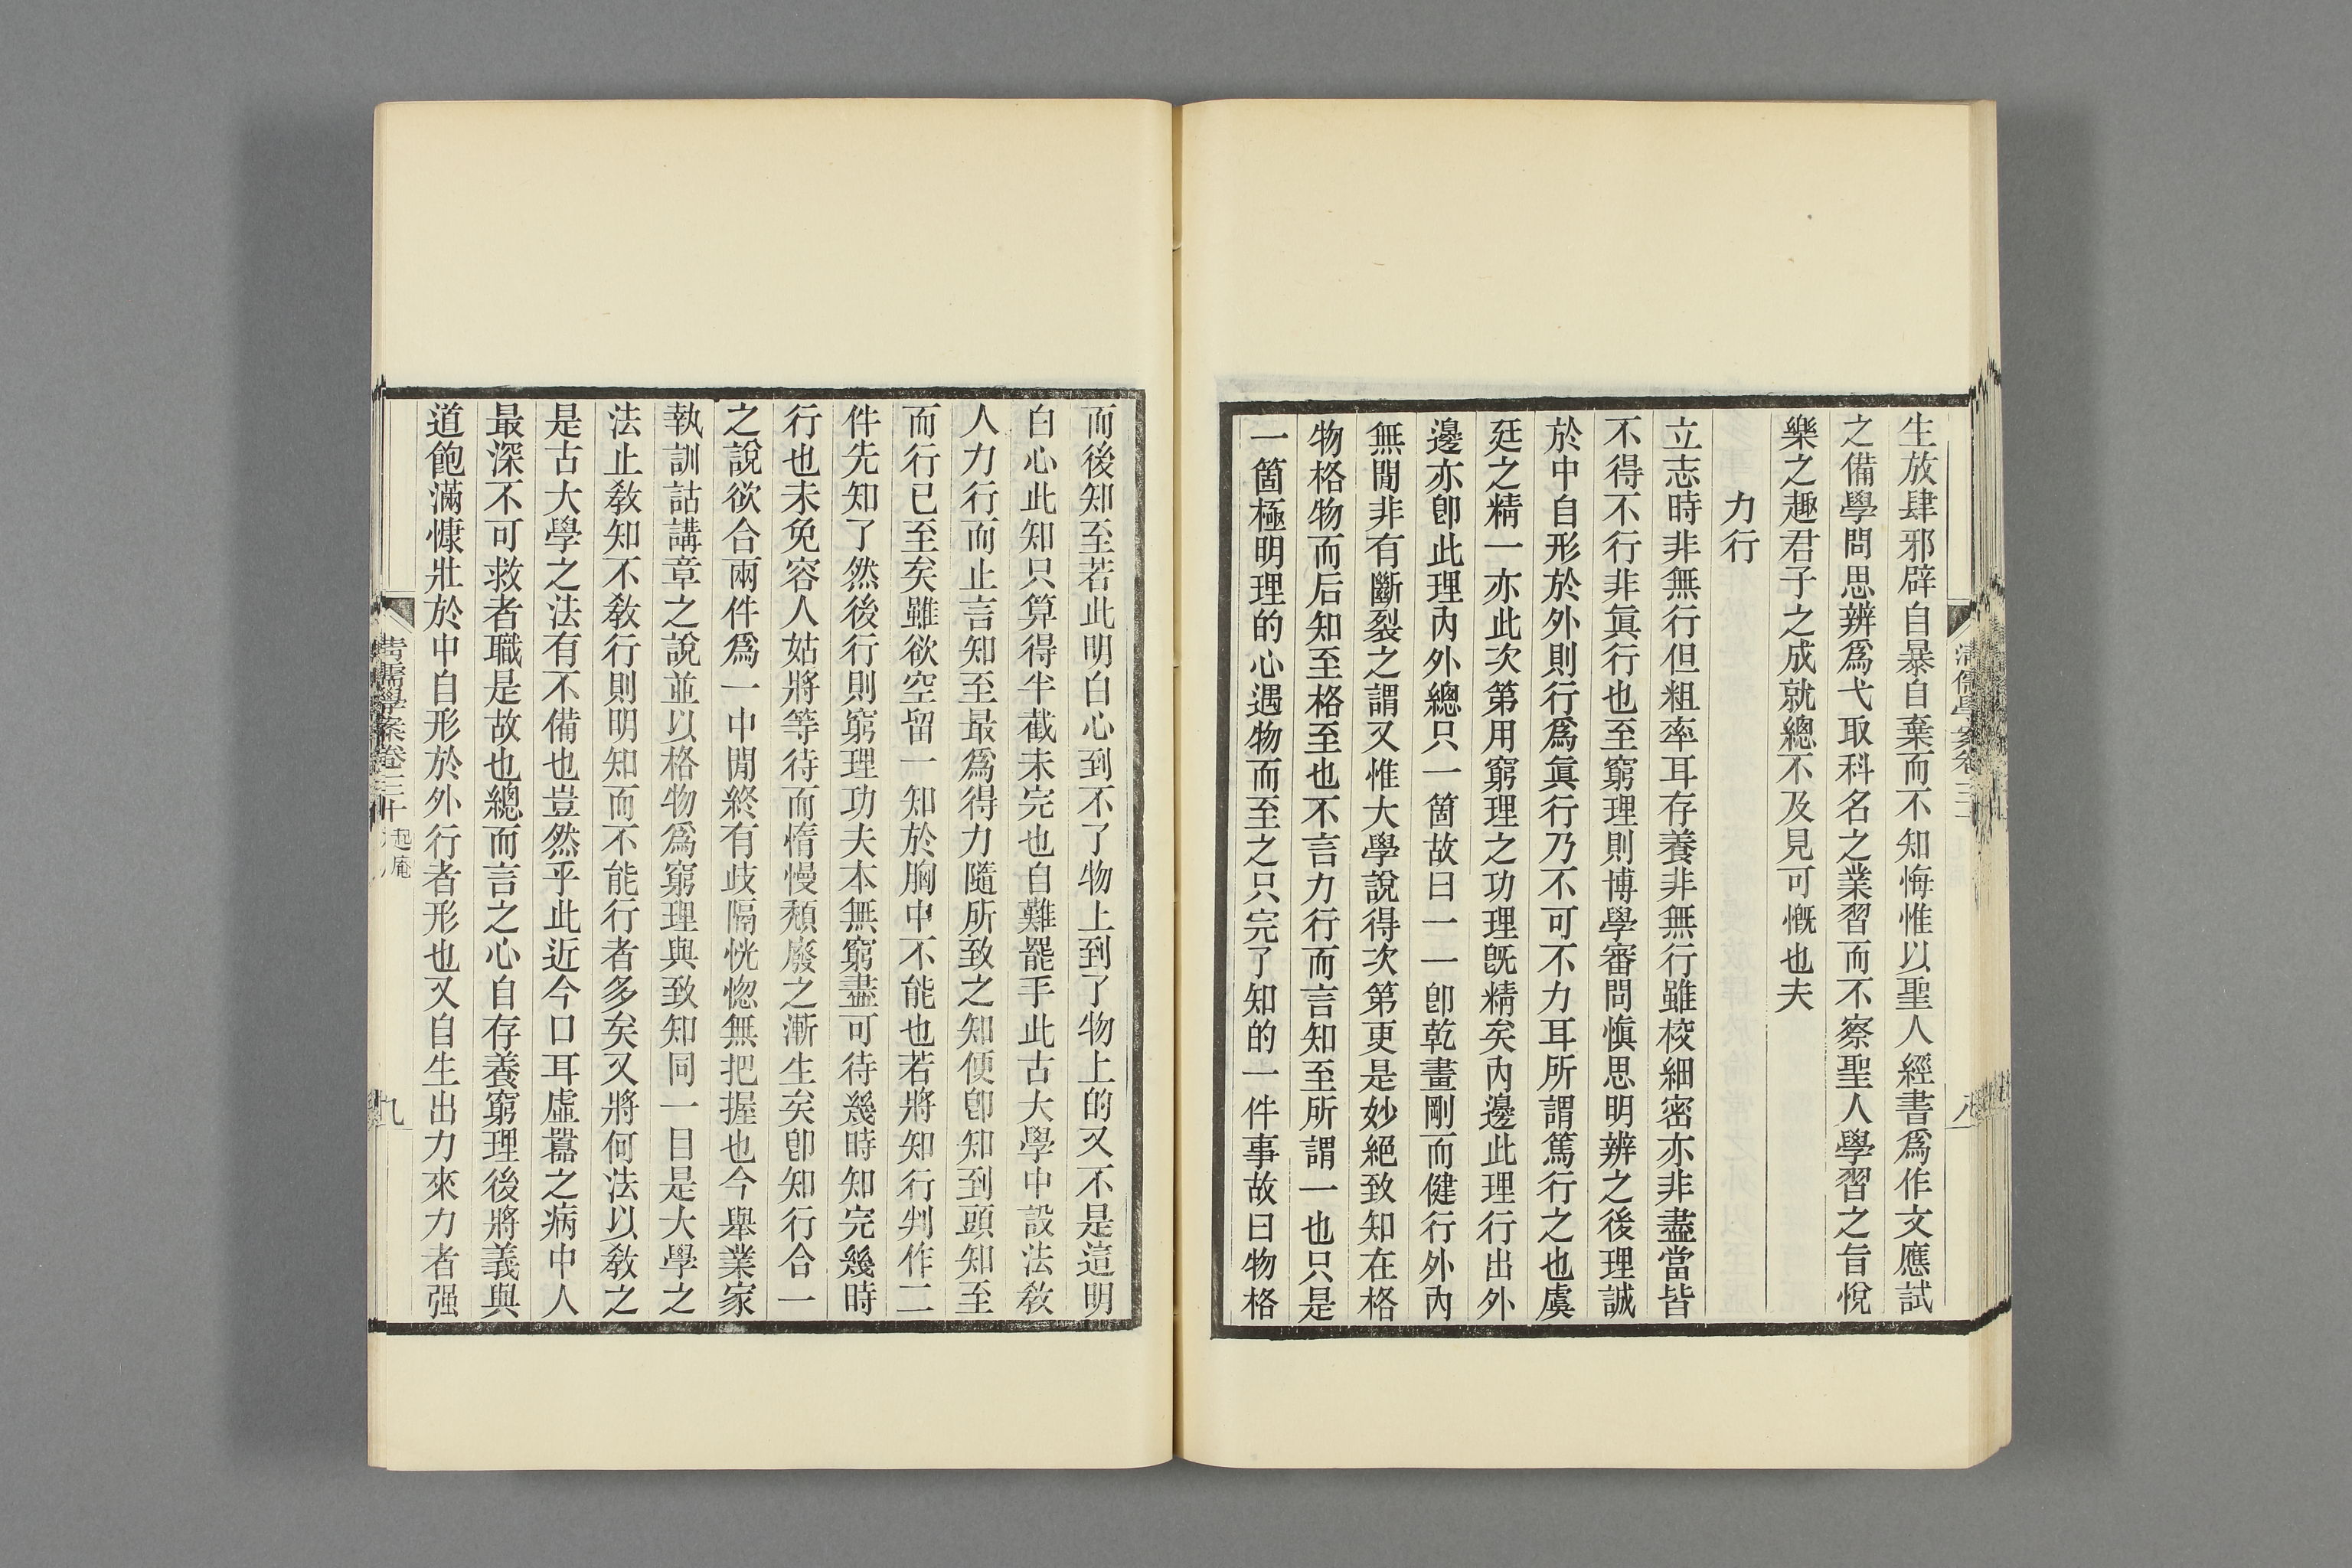 生放肆邪辟自暴自棄而不知悔惟以聖人經書爲作文應試
之備學問思辨爲弋取科名之業習而不察聖人學習之旨悅
樂之趣君子之成就總不及見可慨也夫
力行
立志時非無行但粗率耳存養非無行雖校細密亦非盡當皆
不得不行非眞行也至窮理則博學審問愼思明辨之後理誠
於中自形於外則行爲眞行乃不可不力耳所謂篤行之也虞
廷之精一亦此次第用窮理之功理旣精矣內邊此理行出外
邊亦卽此理內外總只一箇故曰一一卽乾畫剛而健行外內
無閒非有斷裂之謂又惟大學說得次第更是妙絕致知在格
物格物而后知至格至也不言力行而言知至所謂一也只是
一箇極明理的心遇物而至之只完了知的一件事故曰物格
而後知至若此明白心到不了物上到了物上的又不是這明
白心此知只算得半截未完也自難罷手此古大學中設法敎
人力行而止言知至最爲得力隨所致之知便卽知到頭知至
而行已至矣雖欲空留一知於胸中不能也若將知行判作二
件先知了然後行則窮理功夫本無窮盡可待幾時知完幾時
行也未免容人姑將等待而惰慢頹廢之漸生矣卽知行合一
之說欲合兩件爲一中閒終有歧隔恍惚無把握也今舉業家
執訓詁講章之說並以格物爲窮理與致知同一目是大學之
法止敎知不敎行則明知而不能行者多矣又將何法以敎之
是古大學之法有不備也豈然乎此近今口耳虛囂之病中人
最深不可救者職是故也總而言之心自存養窮理後將義與
道飽滿慷壯於中自形於外行者形也又自生出力來力者强
清儒學案卷三十
八
清儒學案卷三十 起庵
九